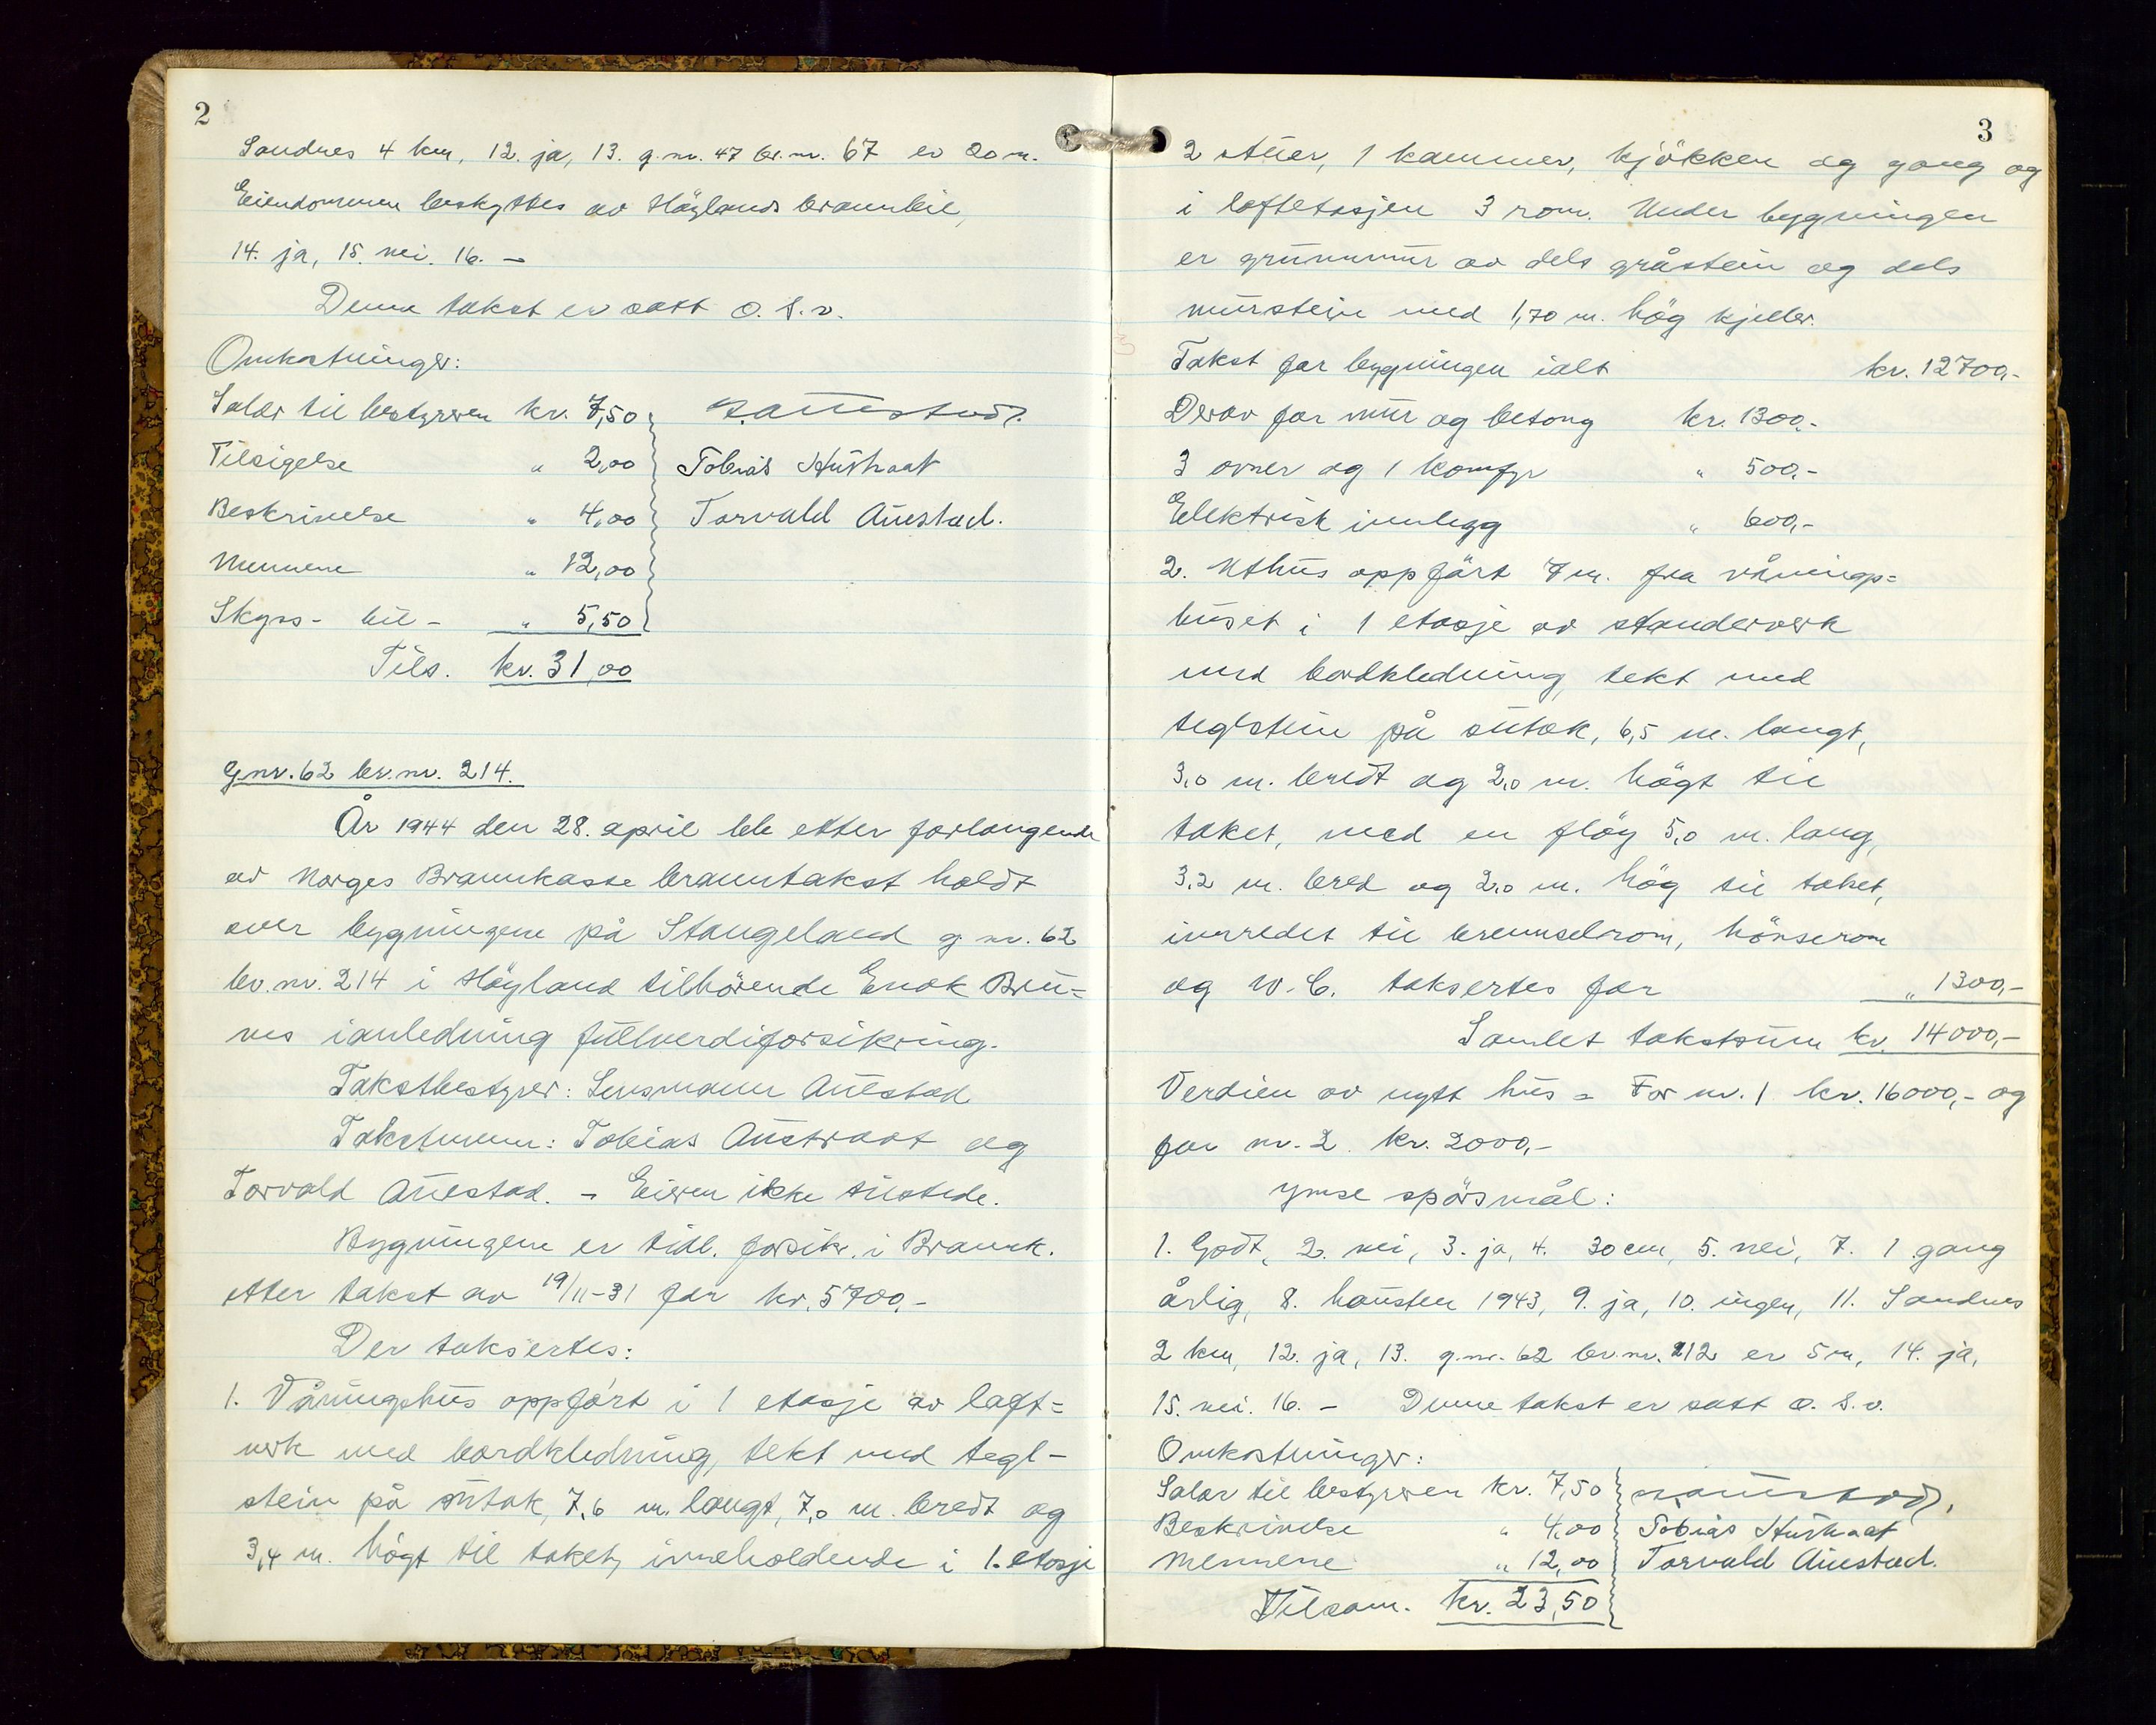 2
Sandnes 4 km, 12. ja, 13. g.nr. 47 br.nr. 67 er 20 m.
Eiendommen beskyttes av Höylands brannbil,
14. ja, 15. nei. 16. –
Denne takst er satt o. s. v.
Omkostninger:
Salær til bestyreren kr. 7,50
Tilsigelse " 2,00 Tobias Austraat
Beskrivelse " 4,00 Torvald Auestad.
Mennene " 12,00
Skyss - bil - " 5,50
Tils. kr. 31,00
G.nr. 62 br.nr. 214.
År 1944 den 28. april ble etter forlangende
av Norges Brannkasse branntakst holdt
over bygningene på Stangeland g.nr. 62
br.nr. 214 i Höyland tilhörende Enok Bru=
nes ianledning fullverdiforsikring.
Takstbestyrer: Lensmann Auestad
Takstmenn: Tobias Austraat og
Torvald Auestad. – Eieren ikke tilstede.
Bygningene er tidl. forsikr. i Brannk.
etter takst av 19/11-31 for kr. 5700,-
Der taksertes:
1. Våningshus oppfört i 1 etasje av laft=
verk med bordkledning, tekt med tegl-
stein på sutak, 7,6 m. langt, 7,0 m. bredt og
3,4 m. högt til taket, inneholdende i 1. etasje
3
2 stuer, 1 kammer, kjökken og gang og
i loftetasjen 3 rom. Under bygningen
er grunnmur av dels gråstein og dels
murstein med 1,70 m. hög kjeller.
Takst for bygningen ialt kr. 12700,-
Derav for mur og betong kr. 1300,-
3 ovner og 1 komfyr " 500,-
Elektrisk innlegg " 600,-
2. Uthus oppfört 7 m. fra vånings=
huset i 1 etasje av standerverk
med bordkledning, tekt med
teglstein på sutak, 6,5 m. langt,
3,0 m. bredt og 2,0 m. högt til
taket, med en flöy 5,0 m. lang,
3,2 m. bred og 2,0 m. hög til taket,
innredet til brenselrom, hönserom
og W.C. taksertes for " 1300,-
Samlet takstsum kr. 14000,-
Verdien av nytt hus = For nr. 1 kr. 16000,- og
for nr. 2 kr. 2000,-
Ymse spörsmål:
1. Godt, 2. nei, 3. ja, 4. 30 cm, 5. nei, 7. 1 gang
årlig, 8. hausten 1943, 9. ja, 10. ingen, 11. Sandnes
2 km, 12. ja, 13. g.nr. 62 br.nr. 212 er 5 m, 14. ja,
15. nei. 16. – Denne takst er satt o. s. v.
Omkostninger:
Salær til bestyreren kr. 7,50
Beskrivelse " 4,00 Tobias Austraat
Mennene " 12,00 Torvald Auestad.
Tilsam. kr. 23,50